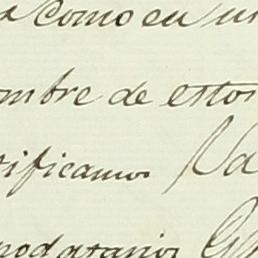 a como en un
ombre de estos
tificamos Va
modatarios